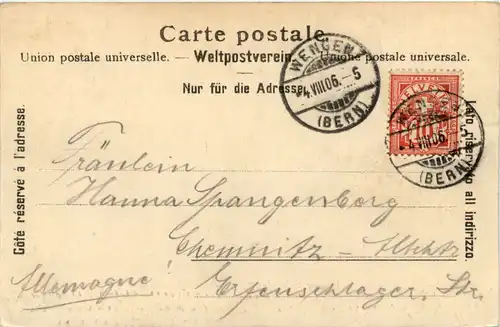 Carte postale.
Union postale universelle. — Weltpostverein. — Unione postale universale.
Nur für die Adresse.
WENGEN
4.VIII.06.–5
(BERN)
HELVETIA
10
WENGEN
4.VIII.06.
(BERN)
Côté réservé à l'adresse.
Lato riservato all indirizzo.
Fräulein
Hanna Spangenberg
Chemnitz - Altchtz
Allemagne
Str.